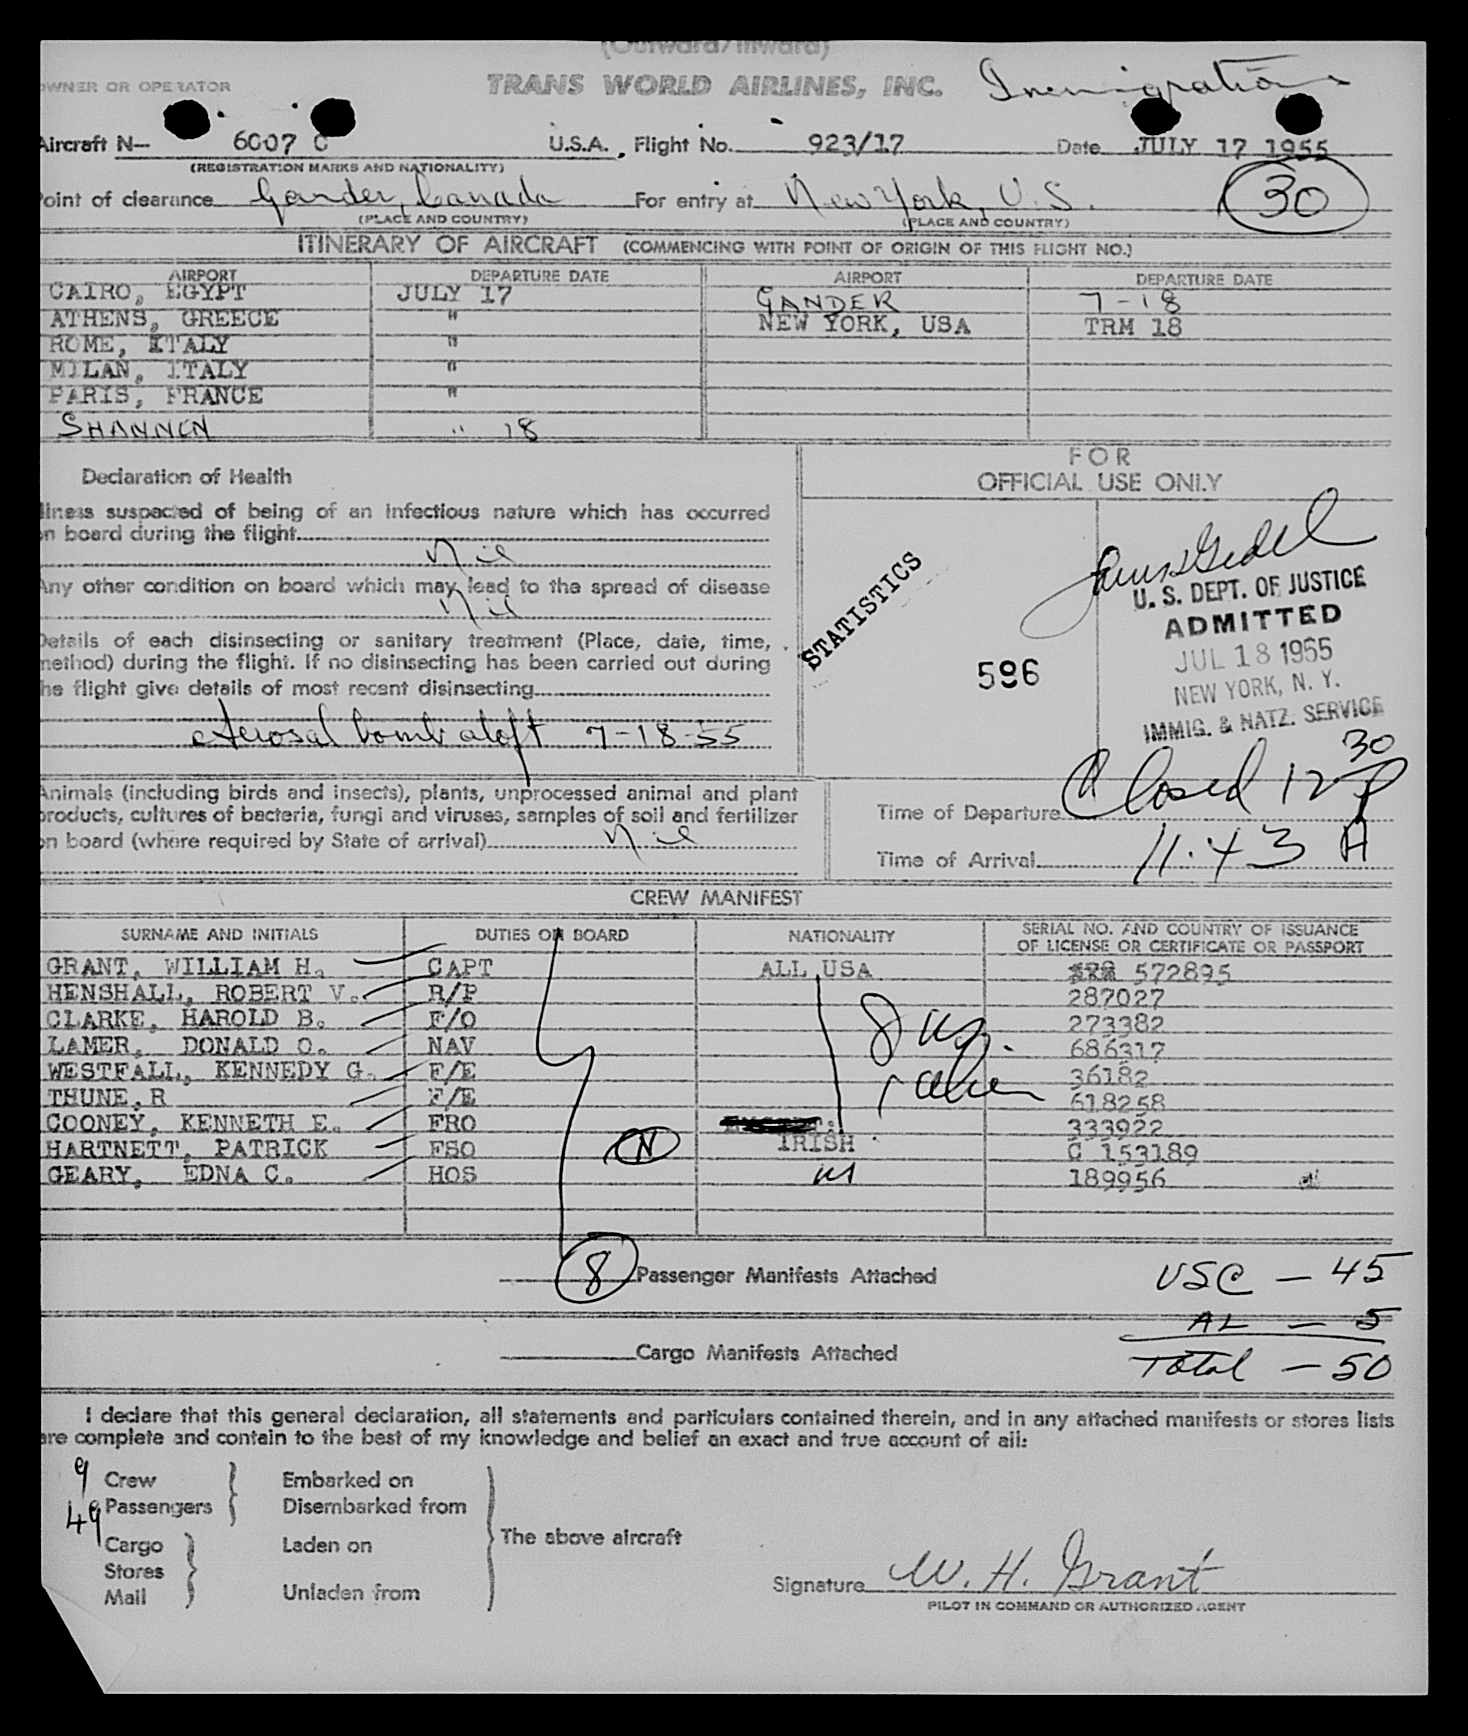 (Outward/Inward)
OWNER OR OPERATOR TRANS WORLD AIRLINES, INC. Immigration
Aircraft N— 6007 C U.S.A. Flight No. 923/17 Date JULY 17 1955
(REGISTRATION MARKS AND NATIONALITY)
Point of clearance Gander, Canada For entry at New York, U.S. 30
(PLACE AND COUNTRY) (PLACE AND COUNTRY)
ITINERARY OF AIRCRAFT (COMMENCING WITH POINT OF ORIGIN OF THIS FLIGHT NO.)
AIRPORT DEPARTURE DATE AIRPORT DEPARTURE DATE
CAIRO, EGYPT JULY 17 GANDER 7-18
ATHENS, GREECE " NEW YORK, USA TRM 18
ROME, ITALY "
MILAN, ITALY "
PARIS, FRANCE "
SHANNON " 18
FOR
OFFICIAL USE ONLY
Declaration of Health
Illness suspected of being of an infectious nature which has occurred
on board during the flight
Nil
Any other condition on board which may lead to the spread of disease
Nil
Details of each disinsecting or sanitary treatment (Place, date, time,
method) during the flight. If no disinsecting has been carried out during
the flight give details of most recent disinsecting
Aerosal bomb aloft 7-18-55
STATISTICS
596
U. S. DEPT. OF JUSTICE
ADMITTED
JUL 18 1955
NEW YORK, N. Y.
IMMIG. & NATZ. SERVICE
Animals (including birds and insects), plants, unprocessed animal and plant
products, cultures of bacteria, fungi and viruses, samples of soil and fertilizer
on board (where required by State of arrival) Nil
Time of Departure Closed 12 30 P
Time of Arrival 11.43 A
CREW MANIFEST
SURNAME AND INITIALS DUTIES ON BOARD NATIONALITY SERIAL NO. AND COUNTRY OF ISSUANCE
OF LICENSE OR CERTIFICATE OR PASSPORT
GRANT, WILLIAM H. CAPT ALL USA 572895
HENSHALL, ROBERT V. R/P 287027
CLARKE, HAROLD B. F/O 273382
LAMER, DONALD O. NAV 686317
WESTFALL, KENNEDY G. F/E 36182
THUNE,R F/E 618258
COONEY, KENNETH E. FRO 333922
HARTNETT, PATRICK FSO N IRISH C 153189
GEARY, EDNA C. HOS US 189956
8 Passenger Manifests Attached USC — 45
AL — 5
Cargo Manifests Attached Total — 50
I declare that this general declaration, all statements and particulars contained therein, and in any attached manifests or stores lists
are complete and contain to the best of my knowledge and belief an exact and true account of all:
9 Crew Embarked on
49 Passengers Disembarked from
The above aircraft
Cargo Laden on
Stores
Mail Unladen from
Signature W. H. Grant
PILOT IN COMMAND OR AUTHORIZED AGENT